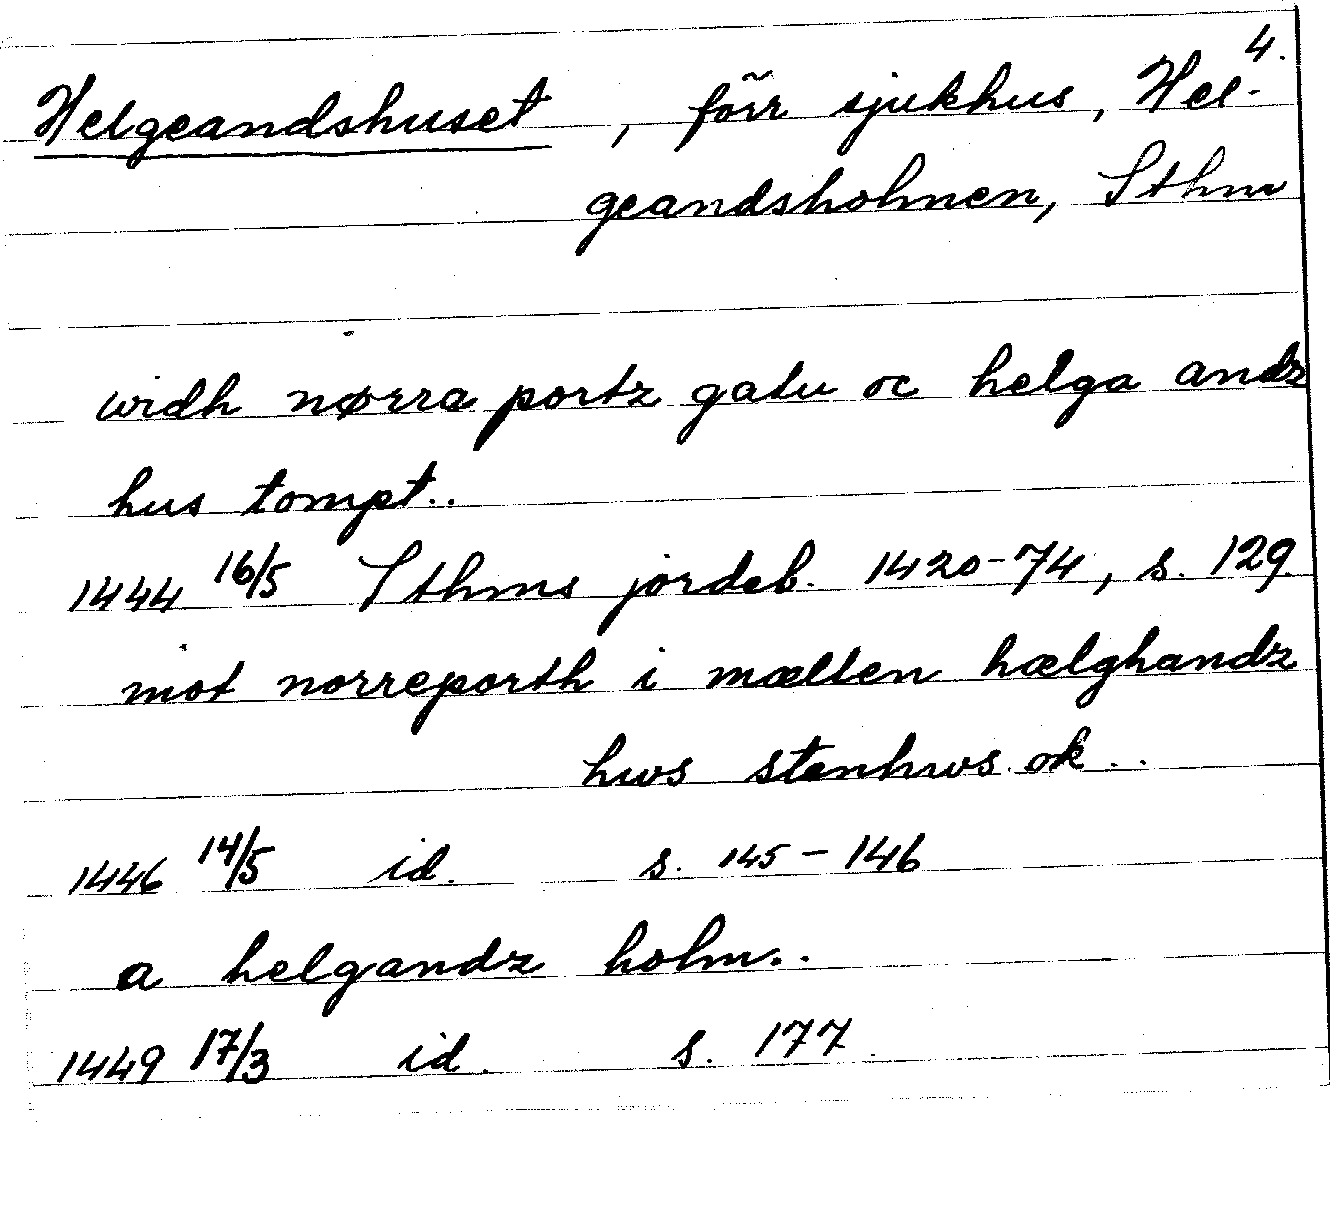 4.
Helgeandshuset, förr sjukhus, Hel-
geandsholmen, Sthm
widh nørra portz gatu oc helga andz
hus tompt..
1444 16/5 Sthms jordeb. 1420-74, s. 129.
mot norreporth i mællen hælghandz
hws stenhws ok..
1446 14/5 id. s. 145-146
a helgandz holm..
1449 17/3 id. s. 177.